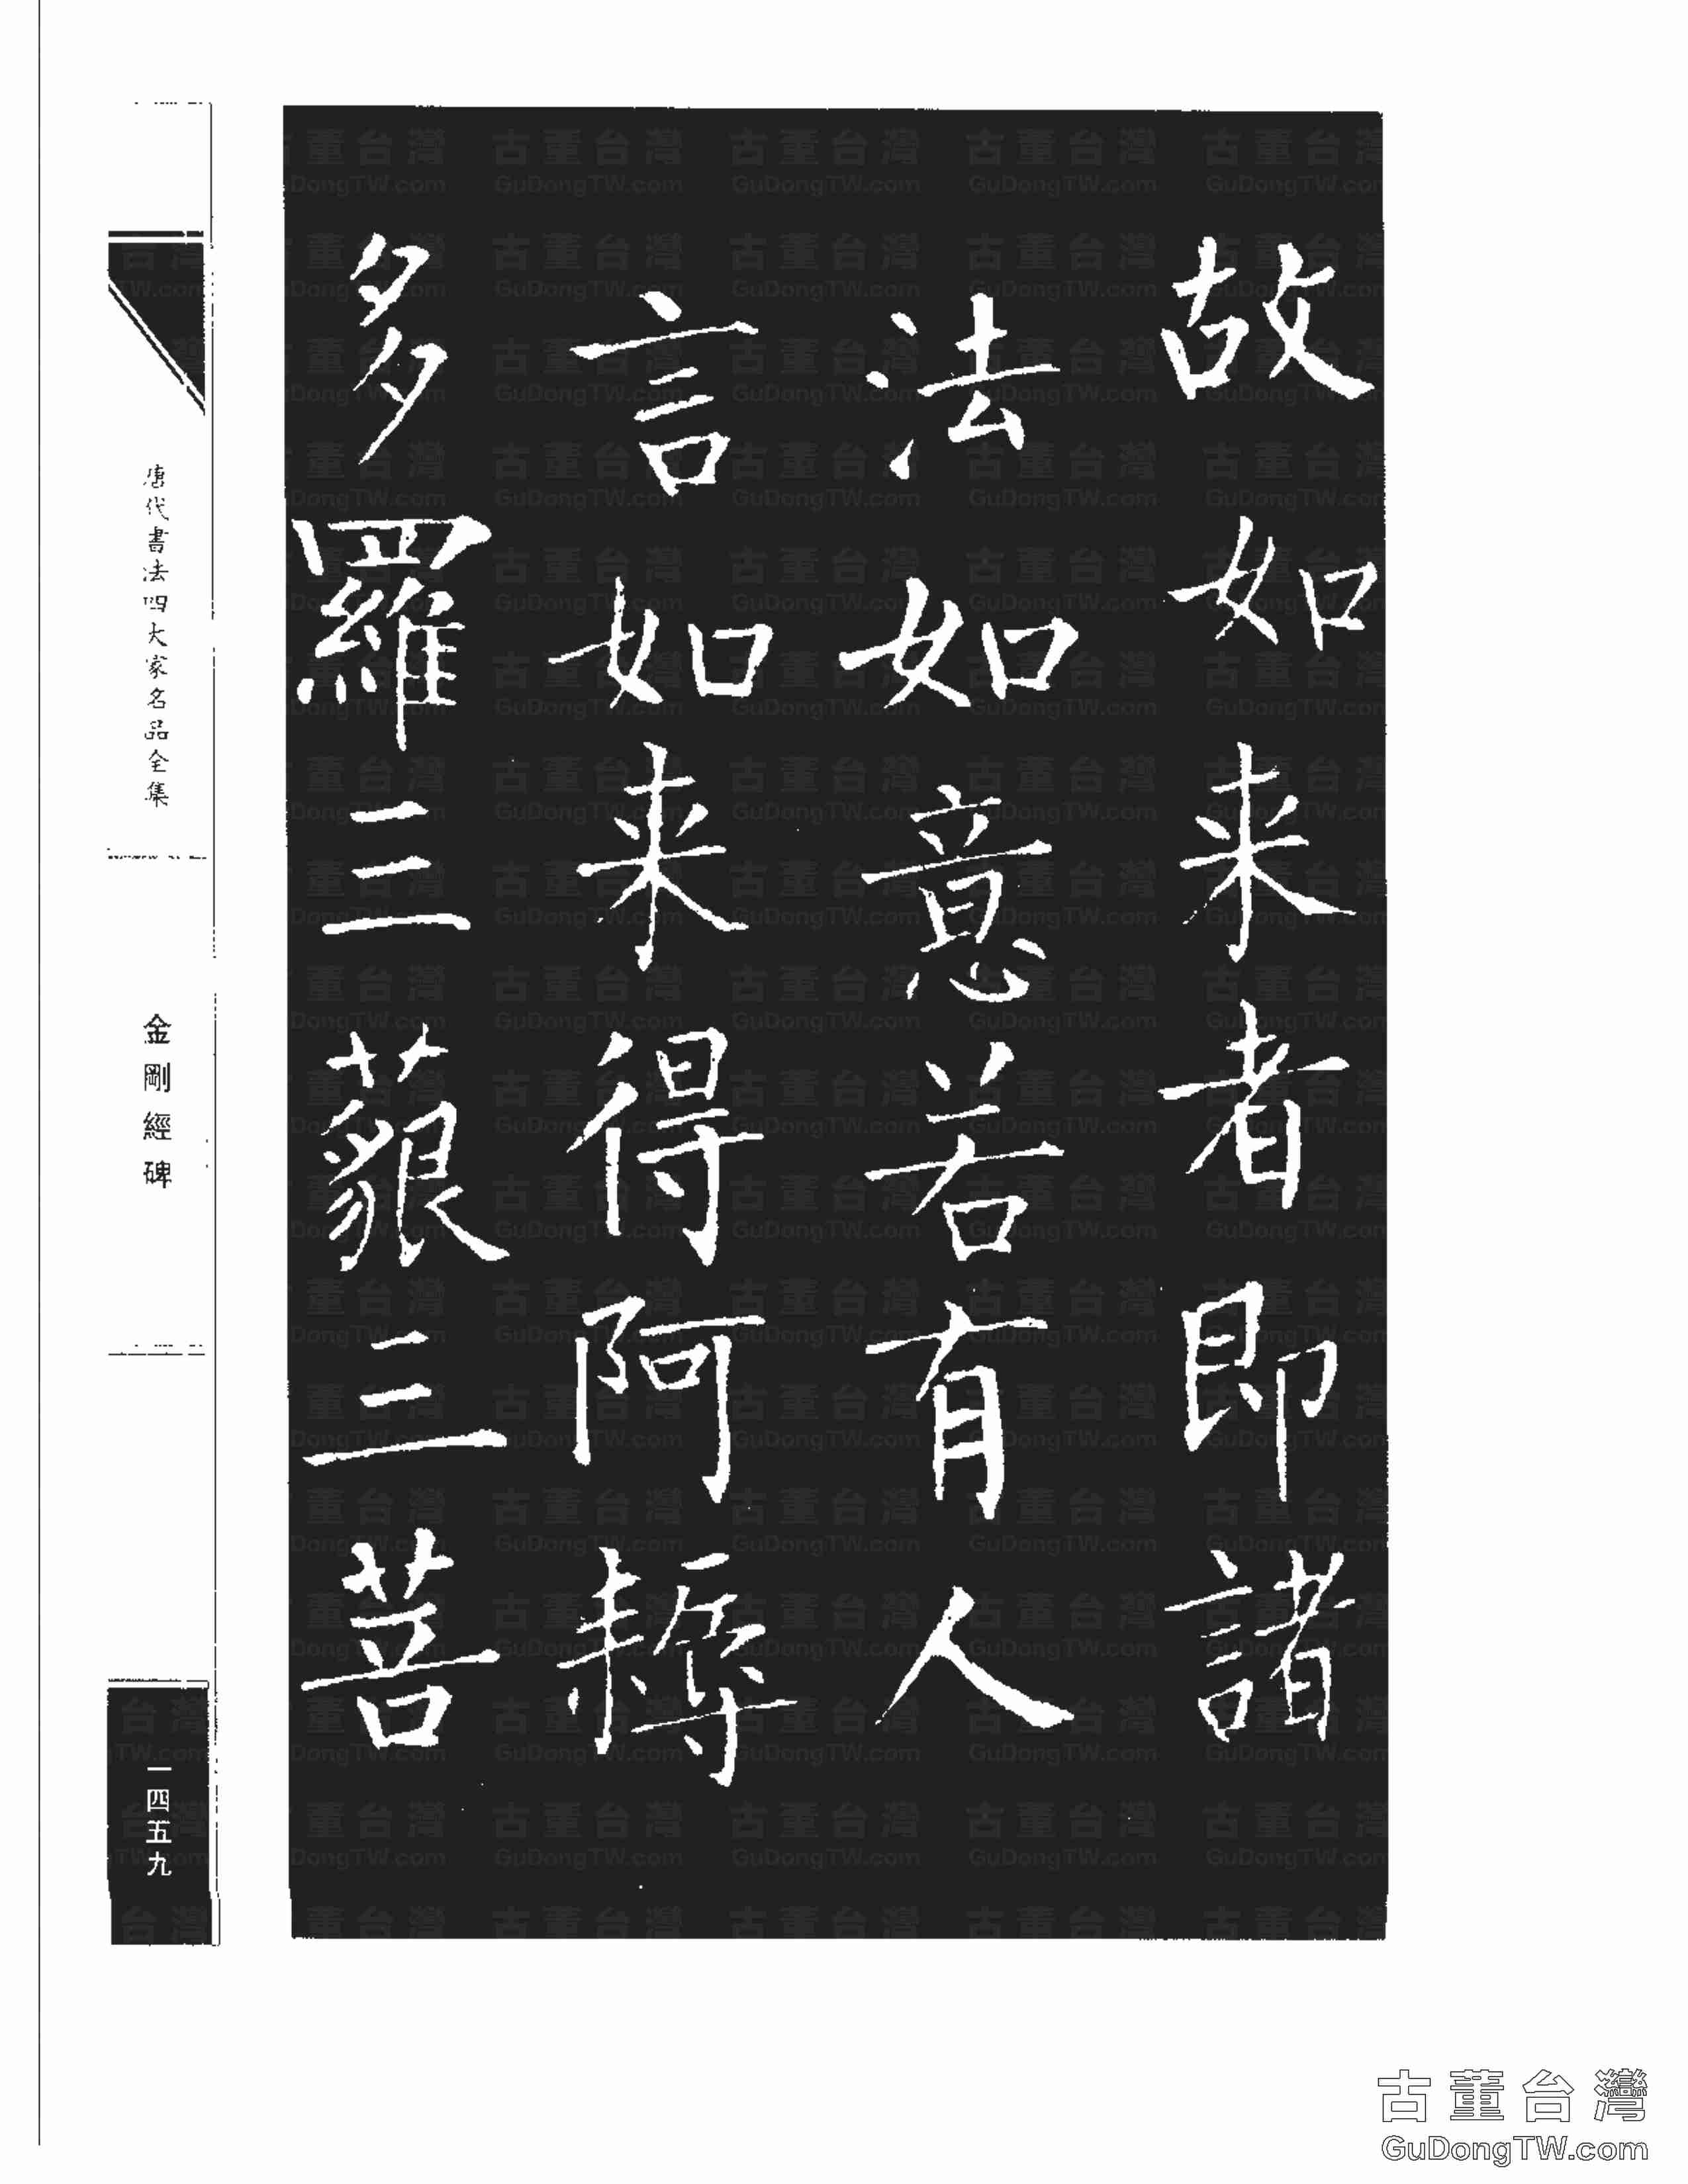 故如来者即諸
法如意若有人
言如来得阿耨
多羅三藐三菩
唐代書法四大家名品全集
金剛經碑
一四五九
古董台灣
GuDongTW.com